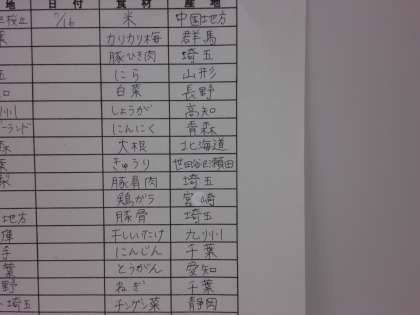 地 日付 食材 産地
7/16 米 中国地方
カリカリ梅 群馬
豚ひき肉 埼玉
玉 にら 山形
白菜 長野
川 しょうが 高知
ーランド にんにく 青森
大根 北海道
きゅうり 世田谷区瀬田
梨 豚肩肉 埼玉
鶏ガラ 宮崎
地方 豚骨 埼玉
干ししいたけ 九州
手 にんじん 千葉
葉 とうがん 愛知
野 ねぎ 千葉
・埼玉 チンゲン菜 静岡